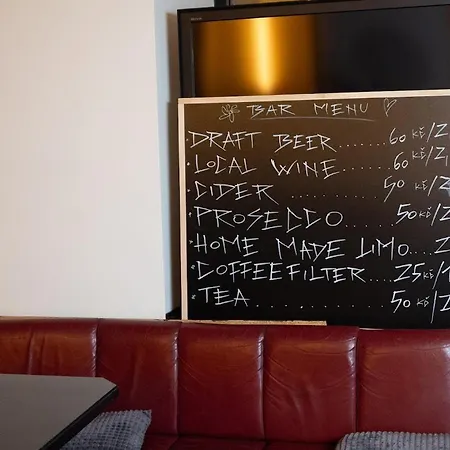 BAR MENU
DRAFT BEER...... 60 Kč/Z
LOCAL WINE...... 60 Kč/Z
CIDER............ 50 Kč/Z
PROSECCO...... 50 Kč/Z
HOME MADE LIMO... Z
COFFEE FILTER.... 25 Kč/1
TEA............... 50 Kč/Z